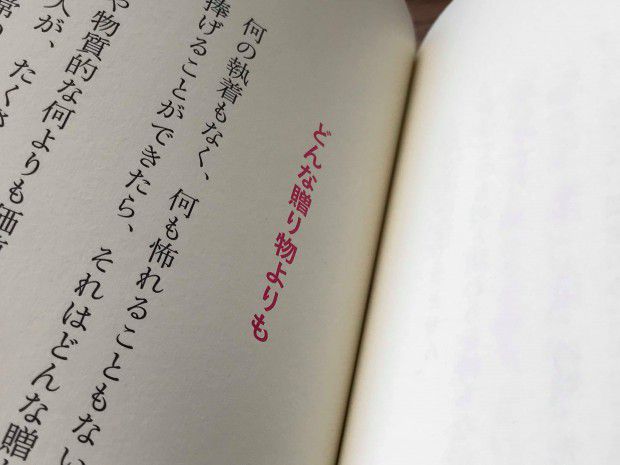 どんな贈り物よりも
何の執着もなく、何も怖れることもない
捧げることができたら、それはどんな贈
や物質的な何よりも価
人が、たくさ